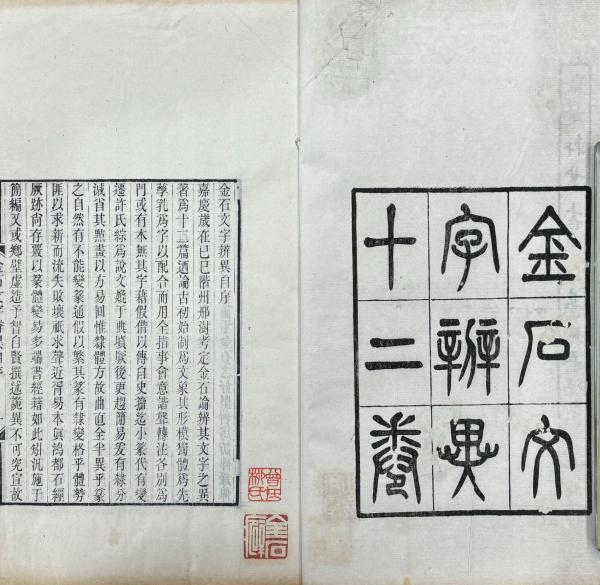 金石文
字辨異
十二卷
金石文字辨異自序
嘉慶歲在己巳階州邢澍考定金石論辨其文字之異
著爲十二篇迺論古初始制爲文象其形模獨體爲先
孳乳爲字以配合而用措事會意諧聲轉注各別爲
門或有本無其字藉假借以傳自史籀迄小篆代有變
遷許氏綜爲說文媲于典墳厥後更趨簡易爰有隸分
減省其畫以方易圓惟隸體方故曲直全半異乎篆
之自然有不能變篆通假以繁其篆有隸變格乎體勢
匪以求新而流失敗壞祇求聲近胥易本眞鴻都石經
厥跡尚存覈以篆體變易多端書經籍如此矧況施于
簡編又或鄉壁虛造予智自賢撰述詭異不可究宣故
金石癖